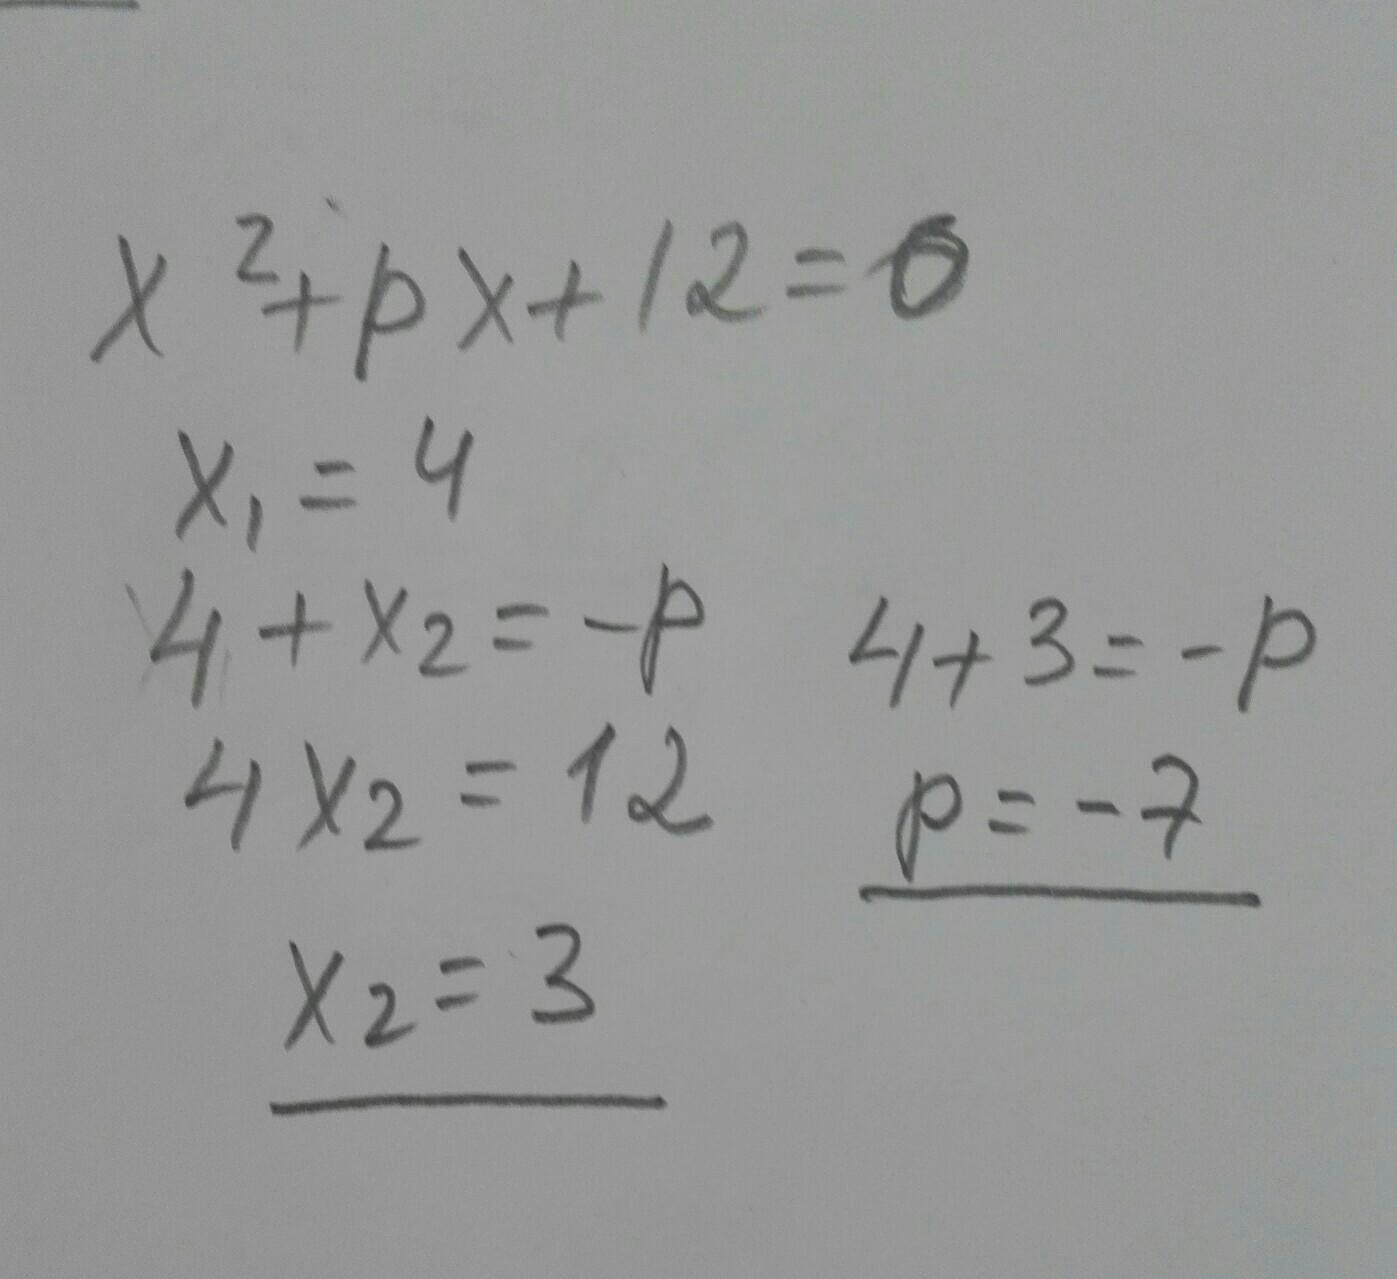 x²+px+12=0
x₁=4
4+x₂=-p
4x₂=12
x₂=3
4+3=-p
p=-7